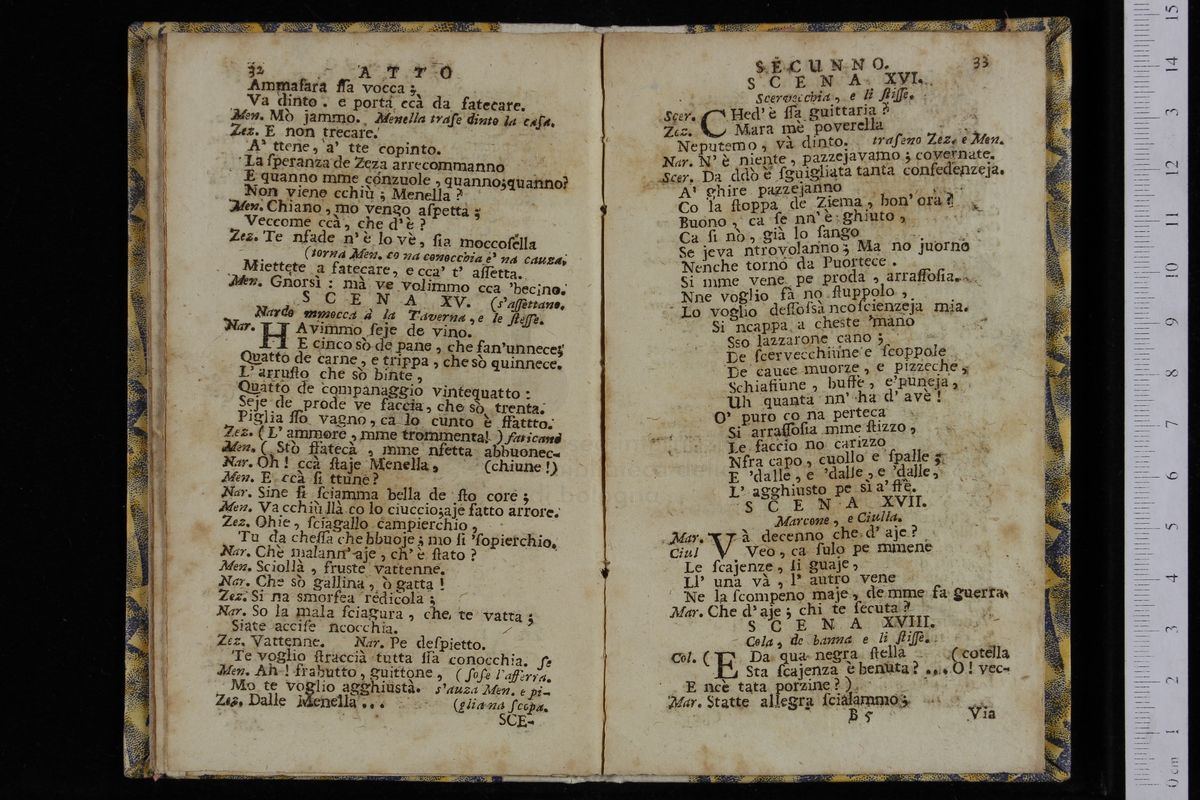 32 ATTO
Ammafara ſſa vocca;
Va dinto. e porta ccà da fatecare.
Men. Mò jammo. Menella traſe dinto la caſa.
Zez. E non trecare.
A' ttene, a' tte copinto.
La ſperanza de Zeza arrecommanno
E quanno mme conzuole, quanno; quanno?
Non viene cchiù; Menella?
Men. Chiano, mo vengo aſpetta;
Veccome ccà, che d'è?
Zez. Te nfade n'è lo vè, ſia moccoſella
(torna Men. co na conocchia e' na cauza.
Miettete a fatecare, e cca' t' aſſetta.
Men. Gnorsì: mà ve volimmo cca 'becino.
SCENA XV. (s'aſſettano.
Nardo mmocca à la Taverna, e le ſteſſe.
Nar. HAvimmo ſeje de vino.
E cinco sò de pane, che fan'unnece;
Quatto de carne, e trippa, che sò quinnece.
L'arruſto che sò binte,
Quatto de companaggio vintequatto:
Seje de prode ve faccia, che sò trenta.
Piglia ſſo vagno, ca lo cunto è ffattto.
Zez. (L'ammore, mme trommenta!) faticand
Men. (Stò ffateca, mme nfetta abbuonec-
Nar. Oh! ccà ſtaje Menella, (chiune!)
Men. E ccà ſi ttune?
Nar. Sine ſi ſciamma bella de ſto core;
Men. Va cchiù llà co lo ciuccio; aje fatto arrore.
Zez. Ohie, ſciagallo campierchio,
Tu da cheſſa che bbuoje; mo ſi 'ſopierchio.
Nar. Chè malann' aje, ch'è ſtato?
Men. Sciollà, fruste vattenne.
Nar. Che sò gallina, ò gatta!
Zez. Si na smorfea redicola;
Nar. So la mala ſciagura, che te vatta;
Siate acciſe ncocchia.
Zez. Vattenne. Nar. Pe deſpietto.
Te voglio ſtraccià tutta ſſa conocchia. ſe
Men. Ah! frabutto, guittone, (ſoſe l'afferra.
Mo te voglio agghiustà. s'auza Men. e pi-
Zez. Dalle Menella... (glia na ſcopa.
SCE-
SECUNNO. 33
SCENA XVI.
Scervecchia, e li ſtiſſe.
Scer. CHed'è ſſa guittaria?
Zez. Mara mè poverella
Neputemo, và dinto. traſeno Zez. e Men.
Nar. N'è niente, pazzejavamo; covernate.
Scer. Da ddò è ſguigliata tanta confedenzeja.
A' ghire pazzejanno
Co la ſtoppa de Ziema, bon'ora?
Buono, ca ſe nn'è ghiuto,
Ca ſi nò, già lo ſango
Se jeva ntrovolanno; Ma no juorno
Nenche tornò da Puortece.
Si mme vene pe proda, arraſſoſia.
Nne voglio fà no ſtuppolo,
Lo voglio deſſoſsà ncoſcienzeja mia.
Si ncappa a cheste 'mano
Sso lazzarone cano;
De ſcervecchiune e ſcoppole
De cauce muorze, e pizzeche,
Schiaffiune, buffe, e'puneja,
Uh quanta nn' ha d' avè!
O' puro co na perteca
Si arraſſoſia mme ſtizzo,
Le faccio no carizzo
Nfra capo, cuollo e ſpalle;
E 'dalle, e 'dalle, e 'dalle,
L' agghiusto pe sì a' ffè.
SCENA XVII.
Marcone, e Ciulla.
Mar. Và decenno che d' aje?
Ciul Veo, ca ſulo pe mmene
Le ſcajenze, ſi guaje,
Ll' una và, l' autro vene
Ne la ſcompeno maje, de mme fa guerra.
Mar. Che d'aje; chi te ſecuta?
SCENA XVIII.
Cola, de banna e li ſtiſſe.
Col. (E Da qua negra ſtella (cotella
Sta ſcajenza è benuta?... O! vec-
E ncè tata porzine?)
Mar. Statte allegra ſcialammo;
B 5 Via